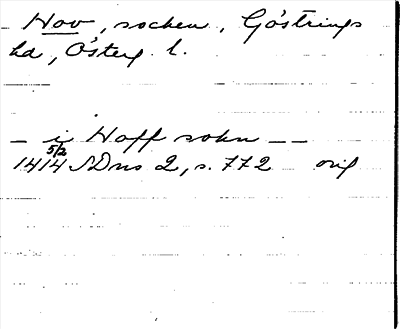 Hov, socken, Göstrings
hd, Österg. l.
— i Hoff sokn — —
1414 5/2 SDns 2, s. 772 orig